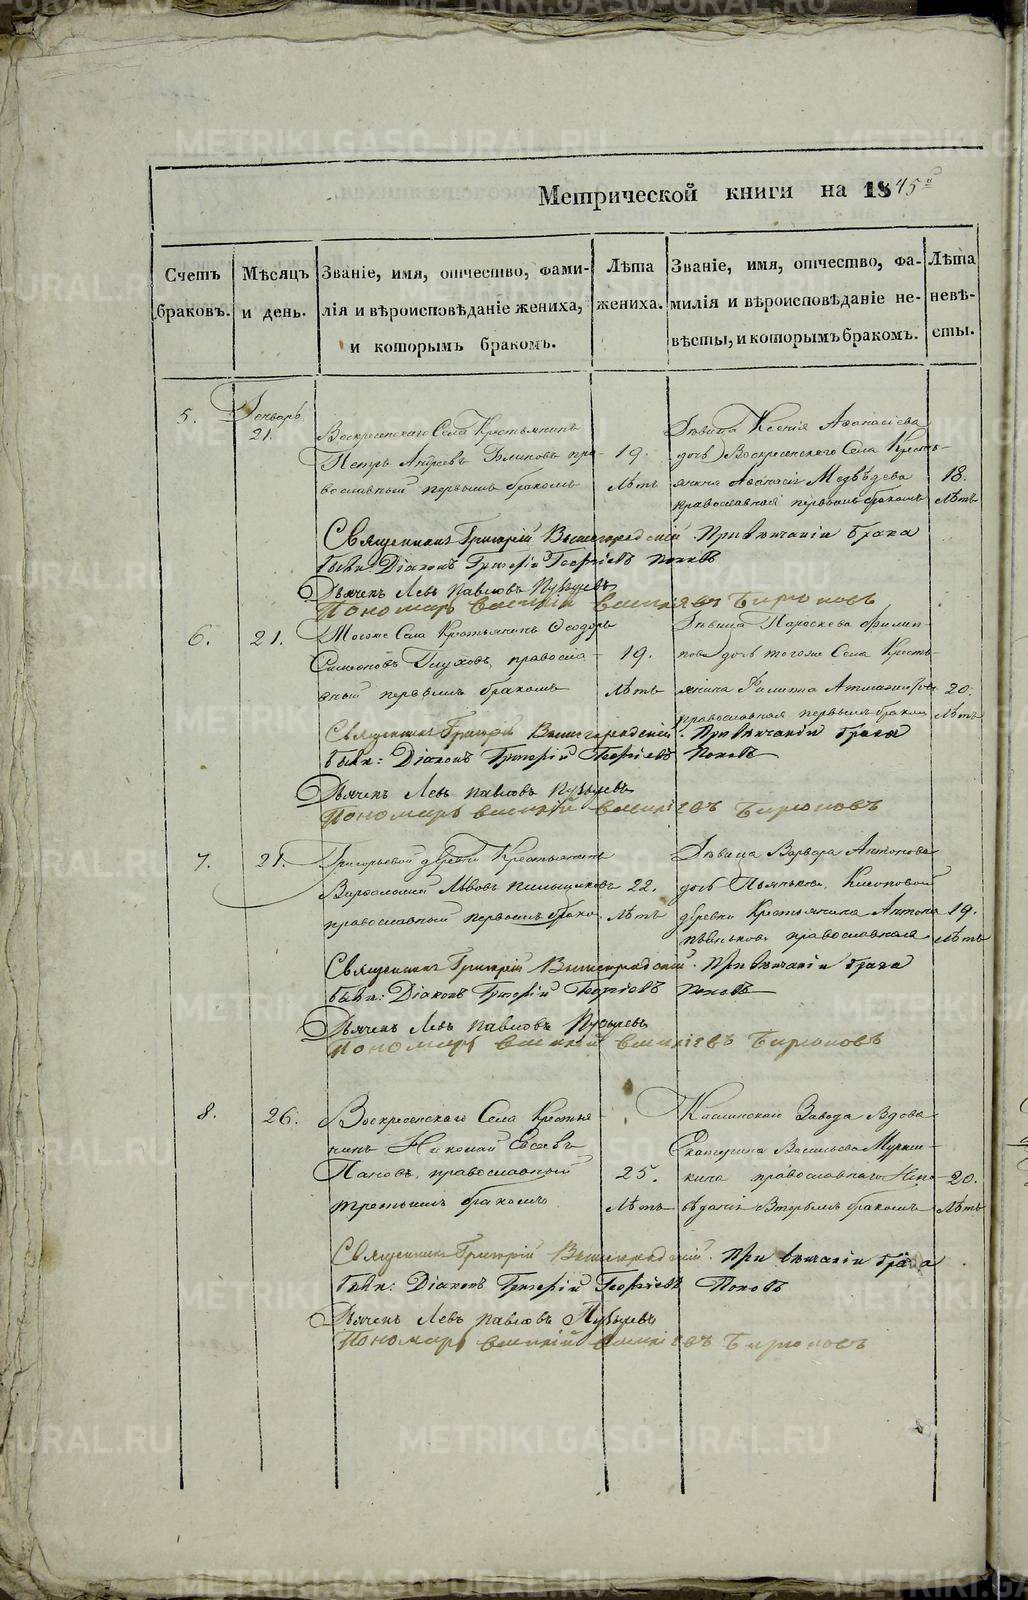 Метрической книги на 1845й
Счетъ браковъ.
Мѣсяцъ и день.
Званіе, имя, отчество, фами-
лія и вѣроисповѣданіе жениха,
и которымъ бракомъ.
Лѣта
жениха.
Званіе, имя, отчество, фа-
милія и вѣроисповѣданіе не-
вѣсты, и которымъ бракомъ.
Лѣта
невѣ-
сты.
5.
Генварь
21.
Воскресенскаго Села Крестьянинъ
Петръ Андреевъ Блиновъ пра-
вославный первымъ бракомъ
19.
Лѣтъ
Дѣвица Ксенія Аѳанасіева
дочь Воскресенскаго Села Кресть-
янина Аѳанасія Медвѣдева
православная первымъ бракомъ
18.
Лѣтъ
Священникъ Григорій Вышегородскій. При вѣнчаніи брака
были: Діаконъ Григорій Георгіевъ Поповъ
Дьячекъ Левъ Павловъ Пузыревъ
Пономарь Василій Васильевъ Бирюковъ
6.
21.
Тогоже Села Крестьянинъ Ѳеодоръ
Симеоновъ Глуховъ, правосла-
вный первымъ бракомъ
19.
Лѣтъ
Дѣвица Параскева Филип-
пова дочь тогоже Села Кресть-
янина Филиппа
православная первымъ бракомъ
20.
Лѣтъ
Священникъ Григорій Вышегородскій. При вѣнчаніи брака
были: Діаконъ Григорій Георгіевъ Поповъ
Дьячекъ Левъ Павловъ Пузыревъ
Пономарь Василій Васильевъ Бирюковъ
7.
21.
Григорьевой деревни Крестьянинъ
Варѳоломей Львовъ Пильщиковъ
православный первымъ брако
22.
Лѣтъ
Дѣвица Варвара Антонова
дочь Пьянькова,
деревни Крестьянина Антона
Пьянькова православная
19.
Лѣтъ
Священникъ Григорій Вышегородскій. При вѣнчаніи брака
были: Діаконъ Григорій Георгіевъ Поповъ
Дьячекъ Левъ Павловъ Пузыревъ
Пономарь Василій Васильевъ Бирюковъ
8.
26.
Воскресенскаго Села Крестья
нинъ Николай Евсеевъ
Пановъ, православный
третьимъ бракомъ
25.
Лѣтъ
Каслинскаго Завода Вдова
Екатерина Васильева Мурши-
кина православнаго Испо-
вѣданія Вторымъ бракомъ
20.
Лѣтъ
Священникъ Григорій Вышегородскій. При вѣнчаніи брака
были: Діаконъ Григорій Георгіевъ Поповъ
Дьячекъ Левъ Павловъ Пузыревъ
Пономарь Василій Васильевъ Бирюковъ
METRIKI.GASO-URAL.RU